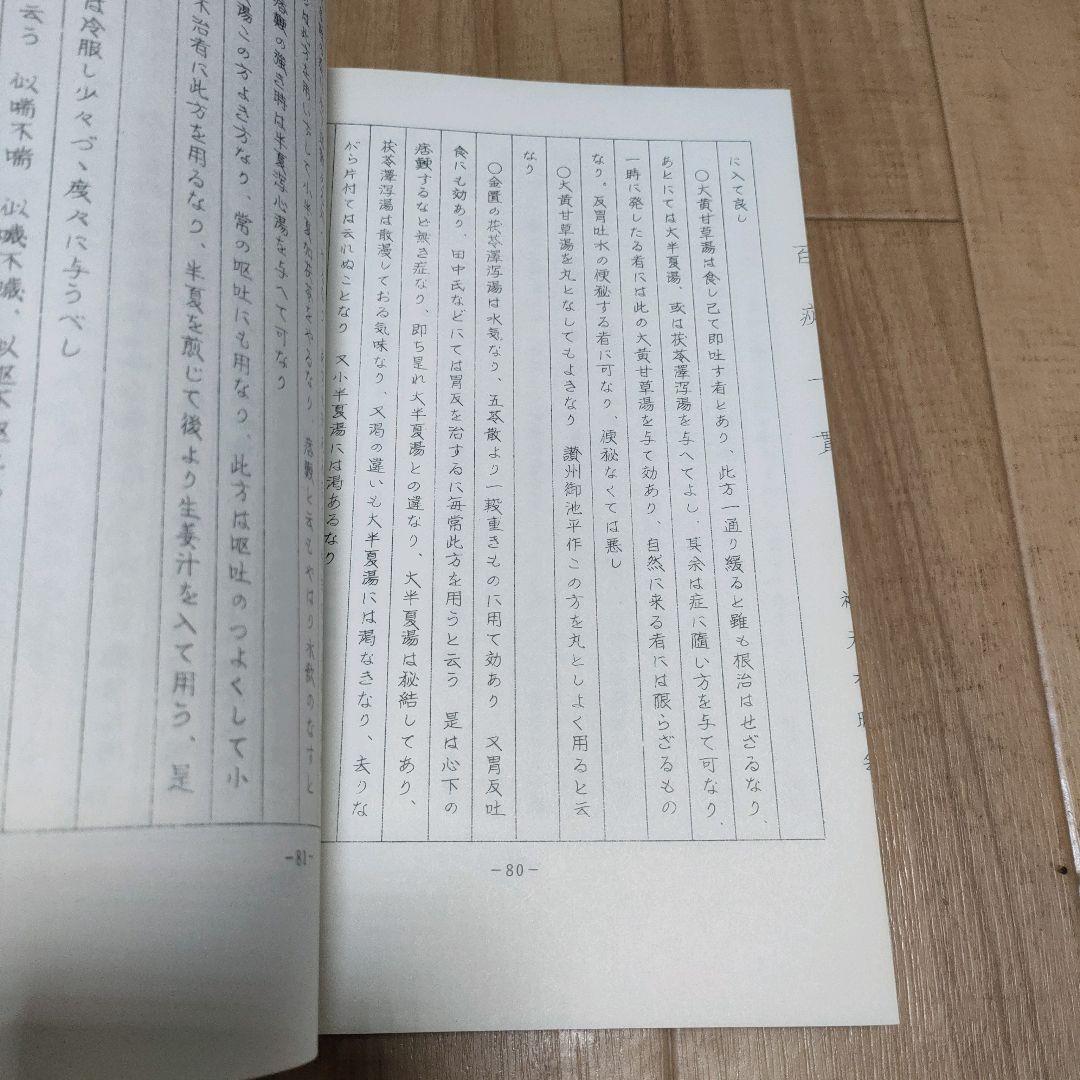 百病一貫
に入て良し
○大黄甘草湯は食し已て即吐す者とあり、此方一通り緩ると雖も根治はせざるなり、
あとにては大半夏湯、或は茯苓澤泻湯を与へてよし、其余は症に隨い方を与て可なり、
一時に発したる者には此の大黄甘草湯を与て効あり、自然に来る者には限らざるもの
なり。反胃吐水の便秘する者に可なり、便秘なくては悪し
○大黄甘草湯を丸となしてもよきなり 讃州御池平作この方を丸としよく用ると云
なり
○金匱の茯苓澤泻湯は水気なり、五苓散より一段重きものに用て効あり 又胃反吐
食にも効あり、田中氏などにては胃反を治するに毎常此方を用うと云う 是は心下の
痞鞕するなど無き症なり、即ち是れ大半夏湯との違なり、大半夏湯は秘結してあり、
茯苓澤泻湯は散漫しておる気味なり、又渇の違いも大半夏湯には渇なきなり、去りな
がら片付ては云れぬことなり 又小半夏湯には渇あるなり
-80-
痞鞕の強き時は半夏泻心湯を与へて可なり
湯この方よき方なり、常の呕吐にも用なり、此方は呕吐のつよくして小
不治者に此方を用るなり、半夏を煎じて後より生姜汁を入て用う、是
は冷服し少々づゝ度々に与うべし
云う 似喘不喘 似噦不噦、似呕不呕
-81-